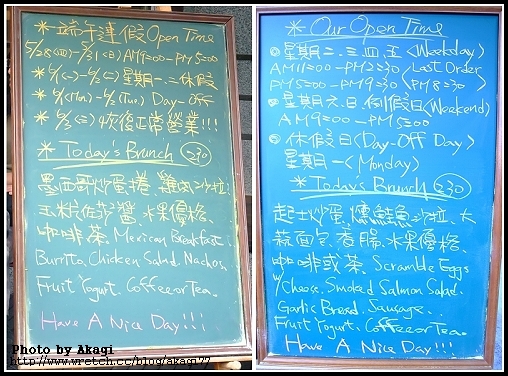 * 端午連假 Open Time
5/28(四)-5/31(日) AM9=00-PM5=00
* 6/1(一)-6/2(二) 星期一.二休假
* 6/1(Mon.)-6/2(Tue.) Day-Off
* 6/3(三) 恢復正常營業!!!
* Today's Brunch 230
墨西哥炒蛋捲. 雞肉沙拉.
玉米片佐莎醬. 水果優格.
咖啡.茶. Mexican Breakfast.
Burrito. Chicken Salad. Nachos.
Fruit Yogurt. Coffee or Tea.
Have A Nice Day!!!
* Our Open Time
◎ 星期二.三.四.五 (Weekday)
AM11=00-PM2=30 (Last Order
PM5=00-PM9=30 (PM8=30)
◎ 星期六.日.例假日 (Weekend)
AM9=00-PM5=00
◎ 休假日 (Day-Off Day)
星期一 (Monday)
* Today's Brunch 230
起士炒蛋. 燻鮭魚沙拉. 大
蒜面包. 香腸. 水果優格.
咖啡或茶. Scramble Eggs
w/Cheese. Smoked Salmon Salad.
Garlic Bread. Sausage.
Fruit Yogurt. Coffee or Tea.
Have A Nice Day!!!
Photo by Akagi
http://www.wretch.cc/blog/akagi77